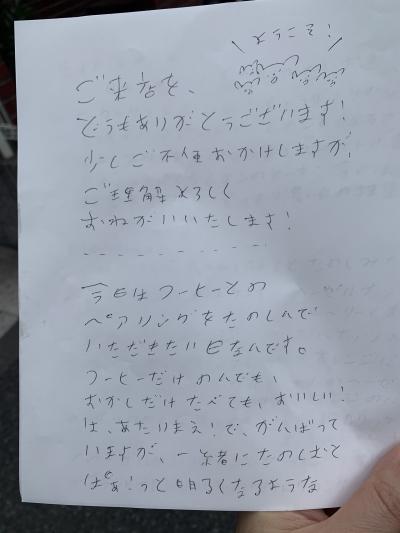 どうもありがとうございます!
少しご不便おかけしますが、
ご理解よろしく
おねがいいたします!
今日はコーヒーとの
ペアリングをたのしんで
いただきたい日なんです。
コーヒーだけのんでも、
おかしだけたべても、おいしい!
は、あたりまえ!で、がんばって
いますが、一緒にたのしむと
ぱぁ!っと明るくなるような